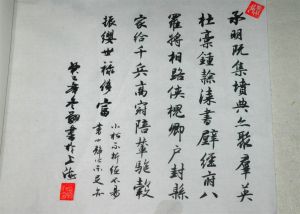 承明既集墳典亦聚羣英
杜稾鍾隸漆書壁經府八
羅將相路俠槐卿户封縣
家給千兵高冠陪輦驅轂
振纓世祿侈富
癸巳年冬書於上海